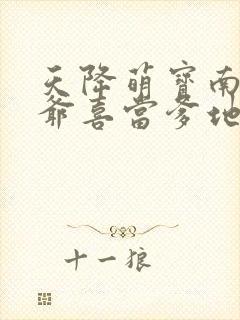 天降萌寶南
爺喜當爹地
十一狼